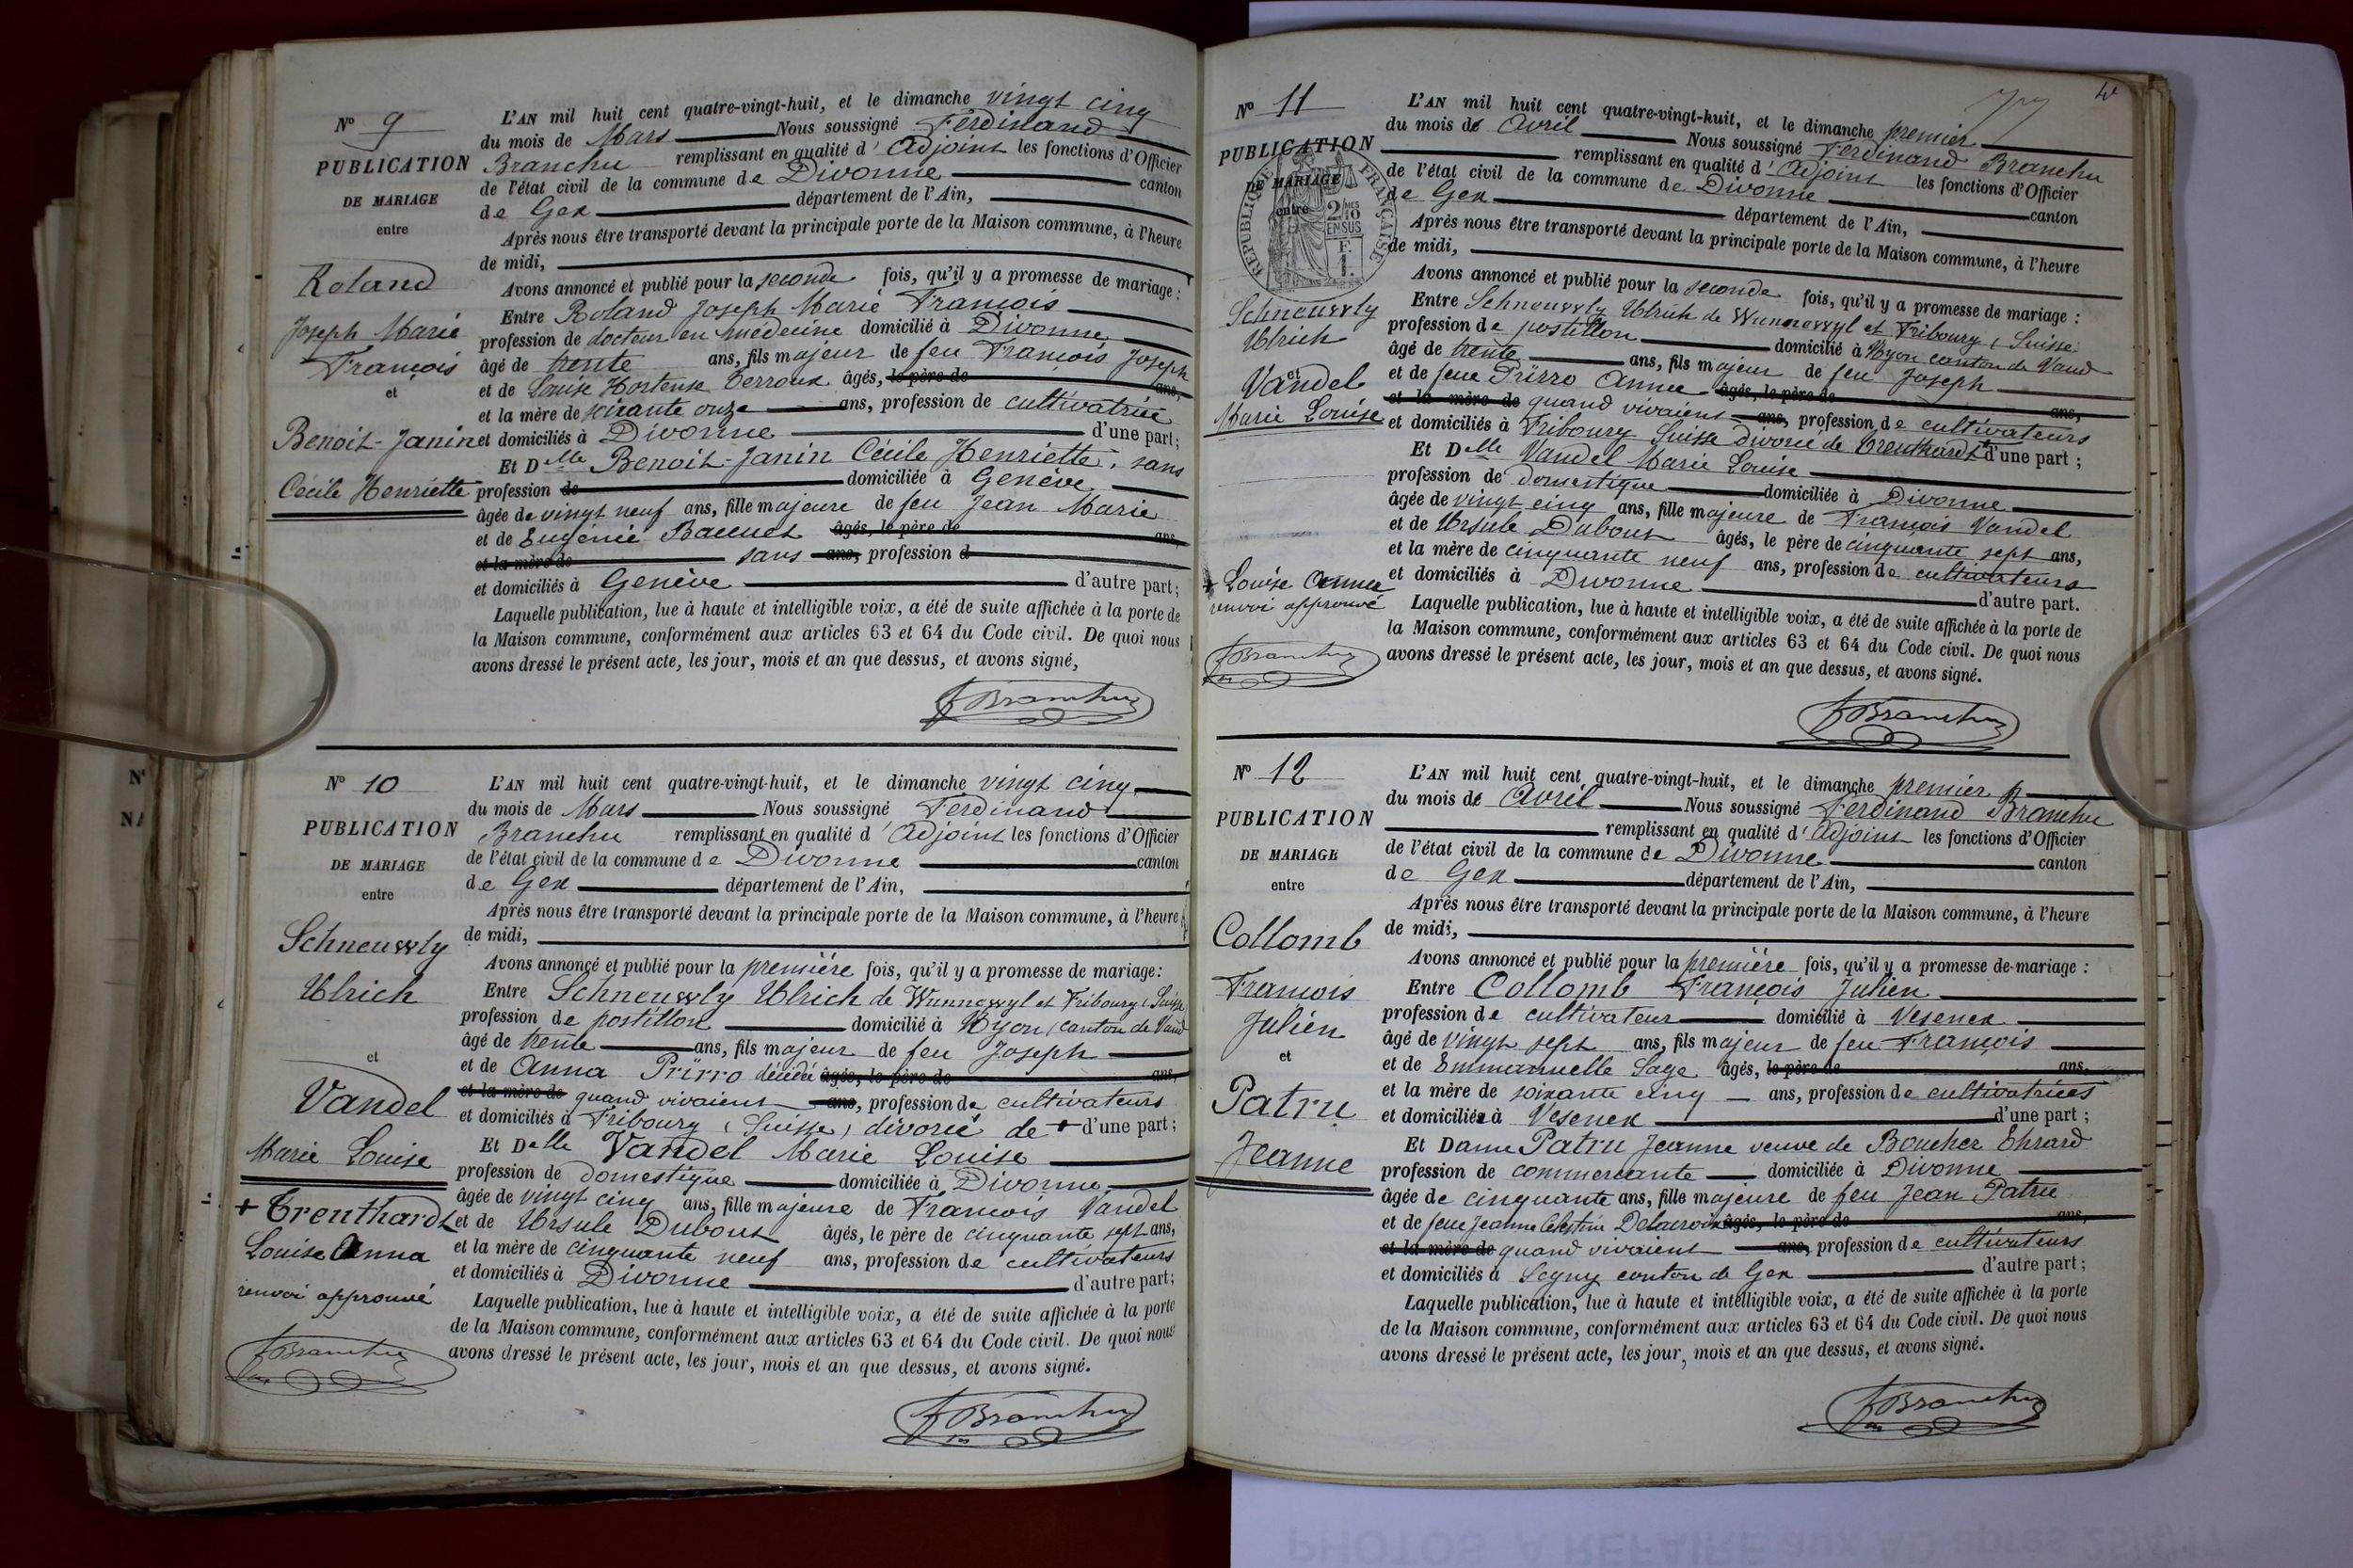 N° 9
PUBLICATION
DE MARIAGE
entre
Roland
Joseph Marie
François
et
Benoit-Janin
Cécile Henriette
L'AN mil huit cent quatre-vingt-huit, et le dimanche vingt cinq
du mois de Mars Nous soussigné Ferdinand
Branchu remplissant en qualité d'Adjoint les fonctions d'Officier
de l'état civil de la commune de Divonne canton
de Gex département de l'Ain,
Après nous être transporté devant la principale porte de la Maison commune, à l'heure
de midi,
Avons annoncé et publié pour la seconde fois, qu'il y a promesse de mariage :
Entre Roland Joseph Marie François
profession de docteur en médecine domicilié à Divonne
âgé de trente ans, fils majeur de feu François Joseph
et de Louise Hortense Terroux âgés, le père de ans,
et la mère de soixante onze ans, profession de cultivatrice
et domiciliés à Divonne d'une part;
Et Delle Benoit-Janin Cécile Henriette, sans
profession de domiciliée à Genève
âgée de vingt neuf ans, fille majeure de feu Jean Marie
et de Eugénie Baccuet âgés, le père de ans,
et la mère de sans ans, profession d
et domiciliés à Genève d'autre part;
Laquelle publication, lue à haute et intelligible voix, a été de suite affichée à la porte de
la Maison commune, conformément aux articles 63 et 64 du Code civil. De quoi nous
avons dressé le présent acte, les jour, mois et an que dessus, et avons signé,
fBranchu
N° 10
PUBLICATION
DE MARIAGE
entre
Schneuwly
Ulrich
et
Vandel
Marie Louise
+ Trenthardt
Louise Anna
renvoi approuvé
fBranchu
L'AN mil huit cent quatre-vingt-huit, et le dimanche vingt cinq
du mois de Mars Nous soussigné Ferdinand
Branchu remplissant en qualité d'Adjoint les fonctions d'Officier
de l'état civil de la commune de Divonne canton
de Gex département de l'Ain,
Après nous être transporté devant la principale porte de la Maison commune, à l'heure
de midi,
Avons annoncé et publié pour la première fois, qu'il y a promesse de mariage:
Entre Schneuwly Ulrich de Wunnewyl et Fribourg (Suisse
profession de postillon domicilié à Nyon (canton de Vaud
âgé de trente ans, fils majeur de feu Joseph
et de Anna Prïrro décédée âgés, le père de ans,
et la mère de quand vivaient ans, profession de cultivateurs
et domiciliés à Fribourg (Suisse) divorcé de + d'une part;
Et Delle Vandel Marie Louise
profession de domestique domiciliée à Divonne
âgée de vingt cinq ans, fille majeure de François Vandel
et de Ursule Dubout âgés, le père de cinquante sept ans,
et la mère de cinquante neuf ans, profession de cultivateurs
et domiciliés à Divonne d'autre part;
Laquelle publication, lue à haute et intelligible voix, a été de suite affichée à la porte
de la Maison commune, conformément aux articles 63 et 64 du Code civil. De quoi nous
avons dressé le présent acte, les jour, mois et an que dessus, et avons signé.
fBranchu
N° 11
PUBLICATION
DE MARIAGE
entre
REPUBLIQUE FRANÇAISE
2/10MES
EN SUS
F.
1.
Schneuwly
Ulrich
et
Vandel
Marie Louise
+ Louise Annee
renvoi approuvé
fBranchu
L'AN mil huit cent quatre-vingt-huit, et le dimanche premier
du mois de Avril Nous soussigné Ferdinand Branchu
remplissant en qualité d'Adjoint les fonctions d'Officier
de l'état civil de la commune de Divonne canton
de Gex département de l'Ain,
Après nous être transporté devant la principale porte de la Maison commune, à l'heure
de midi,
Avons annoncé et publié pour la seconde fois, qu'il y a promesse de mariage :
Entre Schneuwly Ulrich de Wunnewyl et Fribourg (Suisse
profession de postillon domicilié à Nyon canton de Vaud
âgé de trente ans, fils majeur de feu Joseph
et de feue Prïrro Annee âgés, le père de ans,
et la mère de quand vivaient ans, profession de cultivateurs
et domiciliés à Fribourg Suisse divorcé de Trenthardt + d'une part ;
Et Delle Vandel Marie Louise
profession de domestique domiciliée à Divonne
âgée de vingt cinq ans, fille majeure de François Vandel
et de Ursule Dubout âgés, le père de cinquante sept ans,
et la mère de cinquante neuf ans, profession de cultivateurs
et domiciliés à Divonne d'autre part.
Laquelle publication, lue à haute et intelligible voix, a été de suite affichée à la porte de
la Maison commune, conformément aux articles 63 et 64 du Code civil. De quoi nous
avons dressé le présent acte, les jour, mois et an que dessus, et avons signé.
fBranchu
N° 12
PUBLICATION
DE MARIAGE
entre
Collomb
François
Julien
et
Patru
Jeanne
L'AN mil huit cent quatre-vingt-huit, et le dimanche premier
du mois de Avril Nous soussigné Ferdinand Branchu
remplissant en qualité d'Adjoint les fonctions d'Officier
de l'état civil de la commune de Divonne canton
de Gex département de l'Ain,
Après nous être transporté devant la principale porte de la Maison commune, à l'heure
de midi,
Avons annoncé et publié pour la première fois, qu'il y a promesse de-mariage :
Entre Collomb François Julien
profession de cultivateur domicilié à Vesenex
âgé de vingt sept ans, fils majeur de feu François
et de Emmanuelle Sage âgés, le père de ans,
et la mère de soixante cinq ans, profession de cultivatrices
et domiciliés à Vesenex d'une part ;
Et Dame Patru Jeanne veuve de Boucher Ehrard
profession de commercante domiciliée à Divonne
âgée de cinquante ans, fille majeure de feu Jean Patru
et de feue Jeanne Célestine Delacroix âgés, le père de ans,
et la mère de quand vivaient ans, profession de cultivateurs
et domiciliés à Segny canton de Gex d'autre part ;
Laquelle publication, lue à haute et intelligible voix, a été de suite affichée à la porte
de la Maison commune, conformément aux articles 63 et 64 du Code civil. De quoi nous
avons dressé le présent acte, les jour, mois et an que dessus, et avons signé.
fBranchu